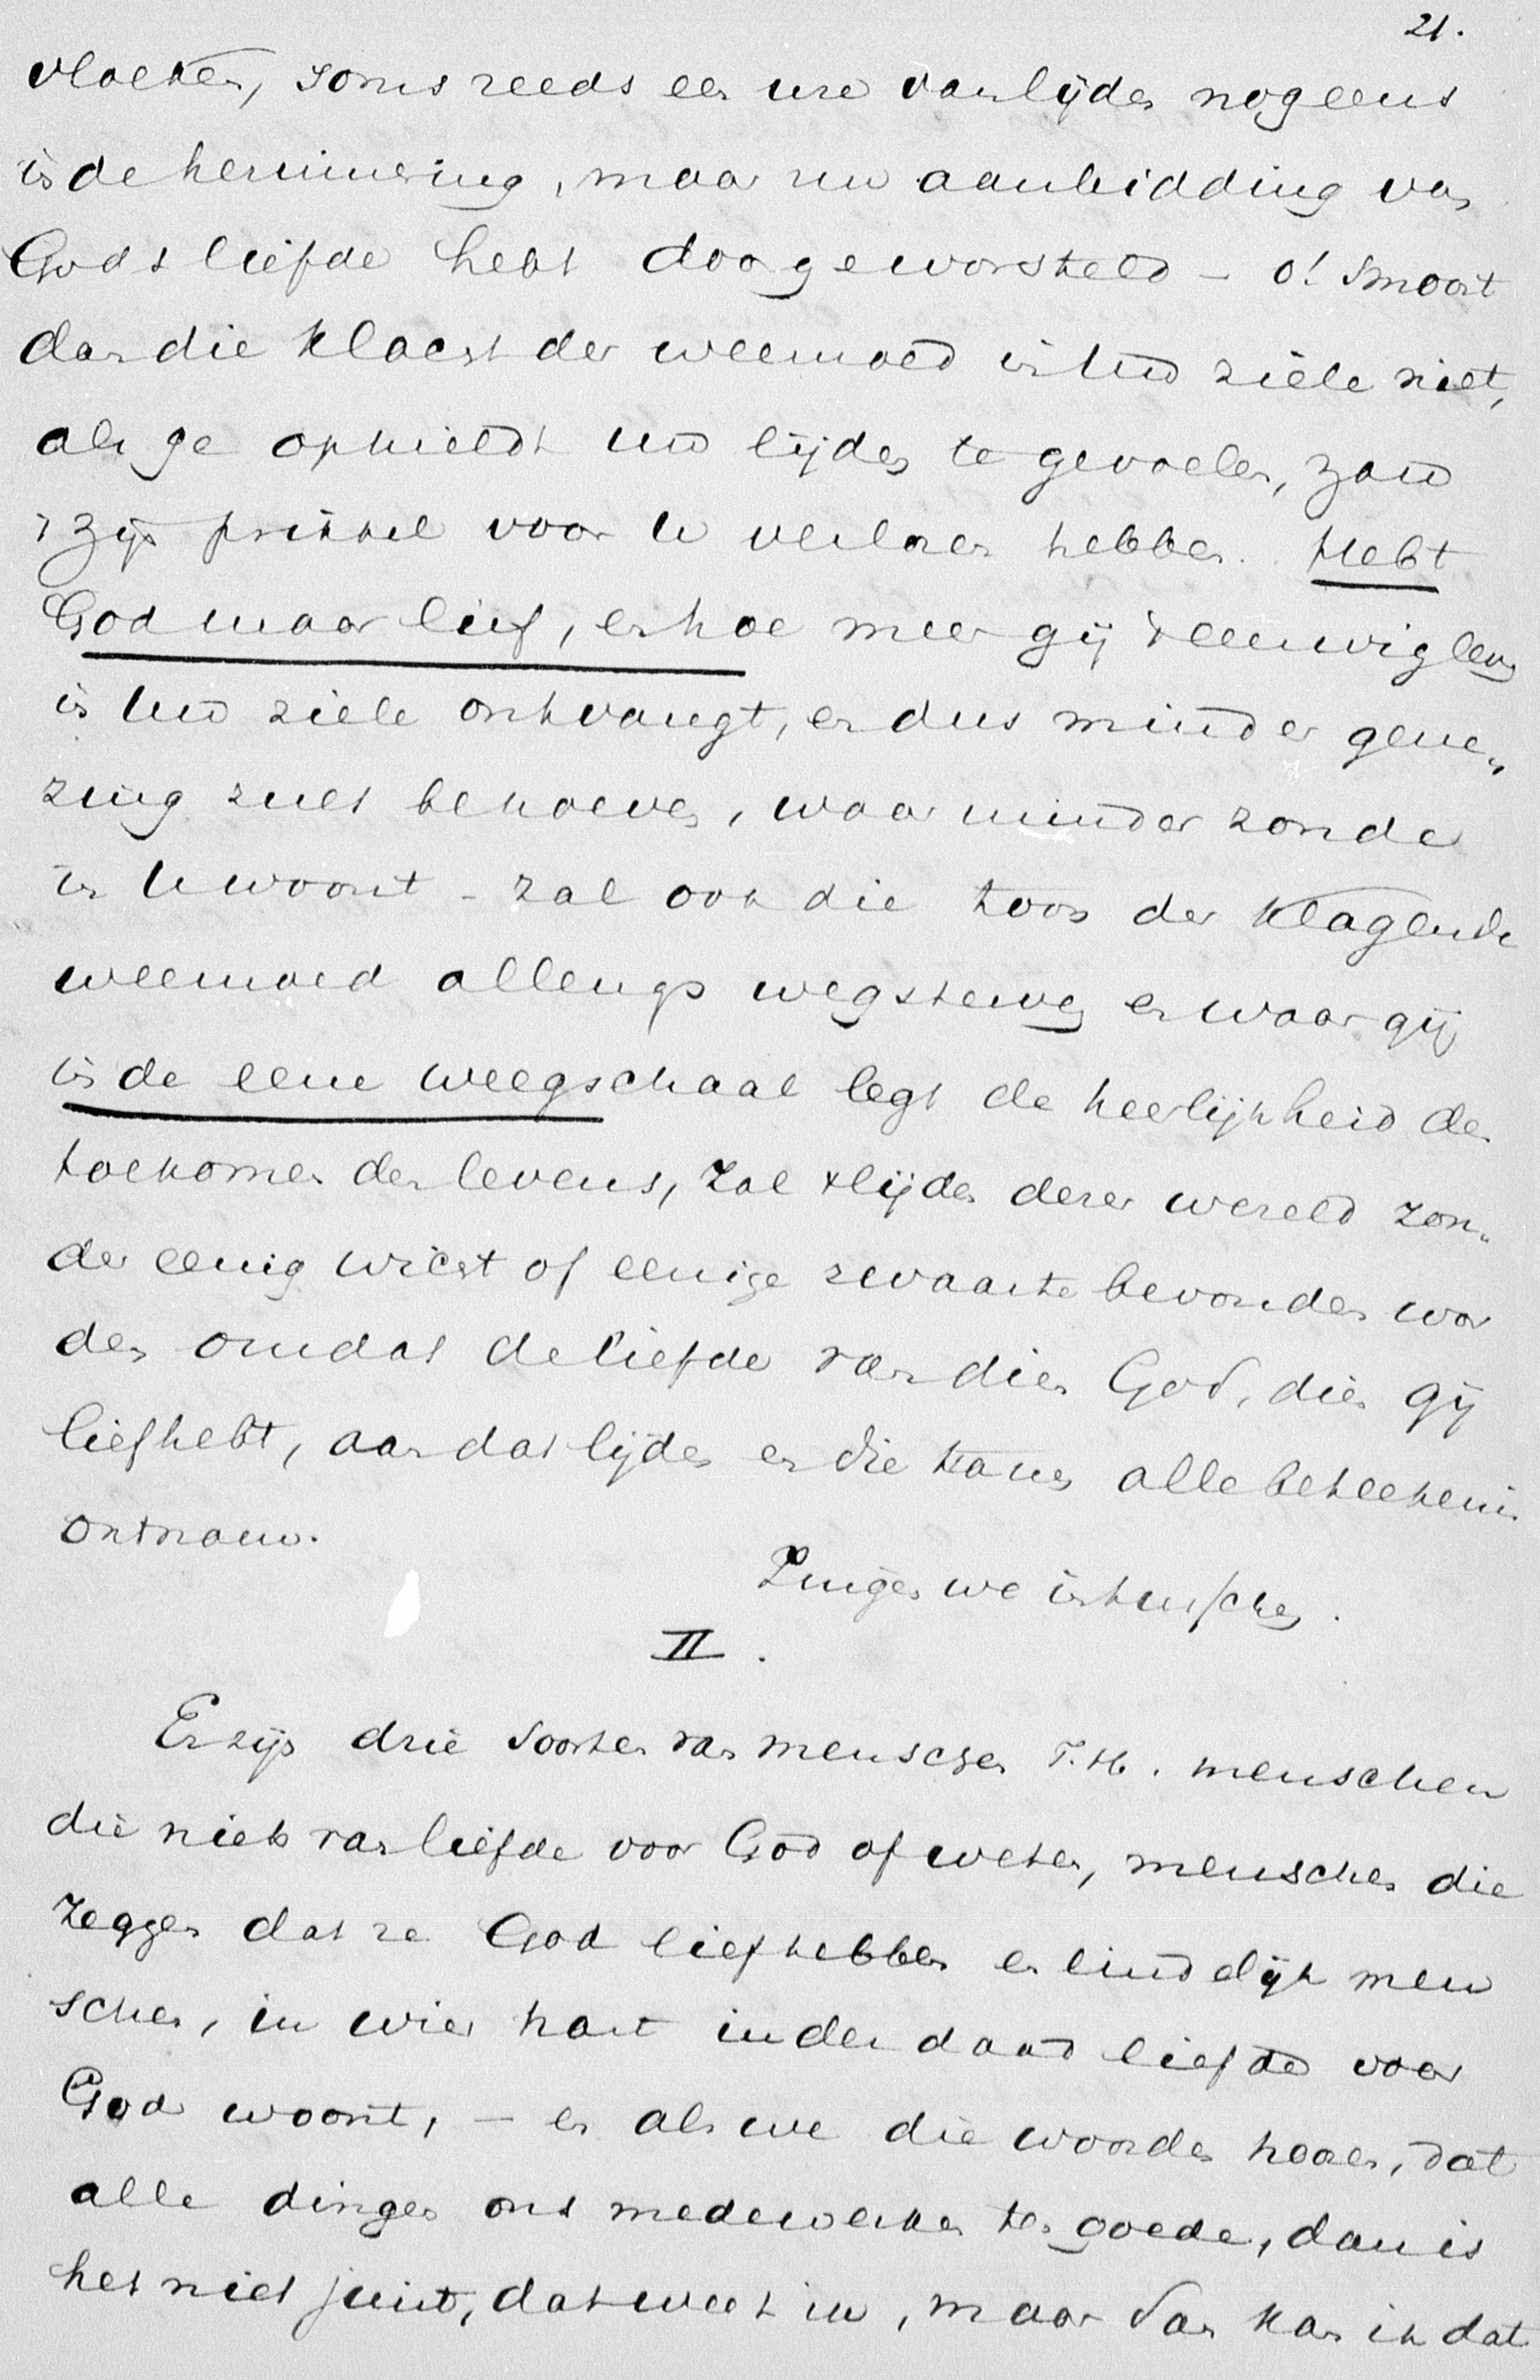 21.
vloeken, soms reeds een ure van lijden nogeens
in de herinnering, maar uw aanbidding van
Gods liefde hebt doorgeworsteld – o! smoort
dan die klacht der weemoed in Uw ziele niet,
als ge ophieldt Uw lijden te gevoelen, zou
't zijn prikkel voor U verloren hebben. Hebt
God maar lief, en hoe meer gij 't eeuwig leven
in Uw ziele ontvangt, en dus minder gene„
zing zult behoeven, waar minder zonde
in U woont – zal ook die toon der klagende
weemoed allengs wegsterven en waar gij
in de eene weegschaal legt de heerlijkheid des
toekomenden levens, zal 't lijden dezer wereld zon„
der eenig wicht of eenige zwaarte bevonden wor
den omdat de liefde van dien God, dien gij
liefhebt, aan dat lijden en die tranen alle beteekenis
ontnam.
Zingen we intusschen.
II.
Er zijn drie soorten van menschen T.H. menschen
die niets van liefde voor God afweten, menschen die
zeggen dat ze God liefhebben en eindelijk men
schen, in wier hart inderdaad liefde voor
God woont, – en als we die woorden hooren, dat
alle dingen ons medewerken ten goede, dan is
het niet juist, dat weet ik, maar dan kan ik dat